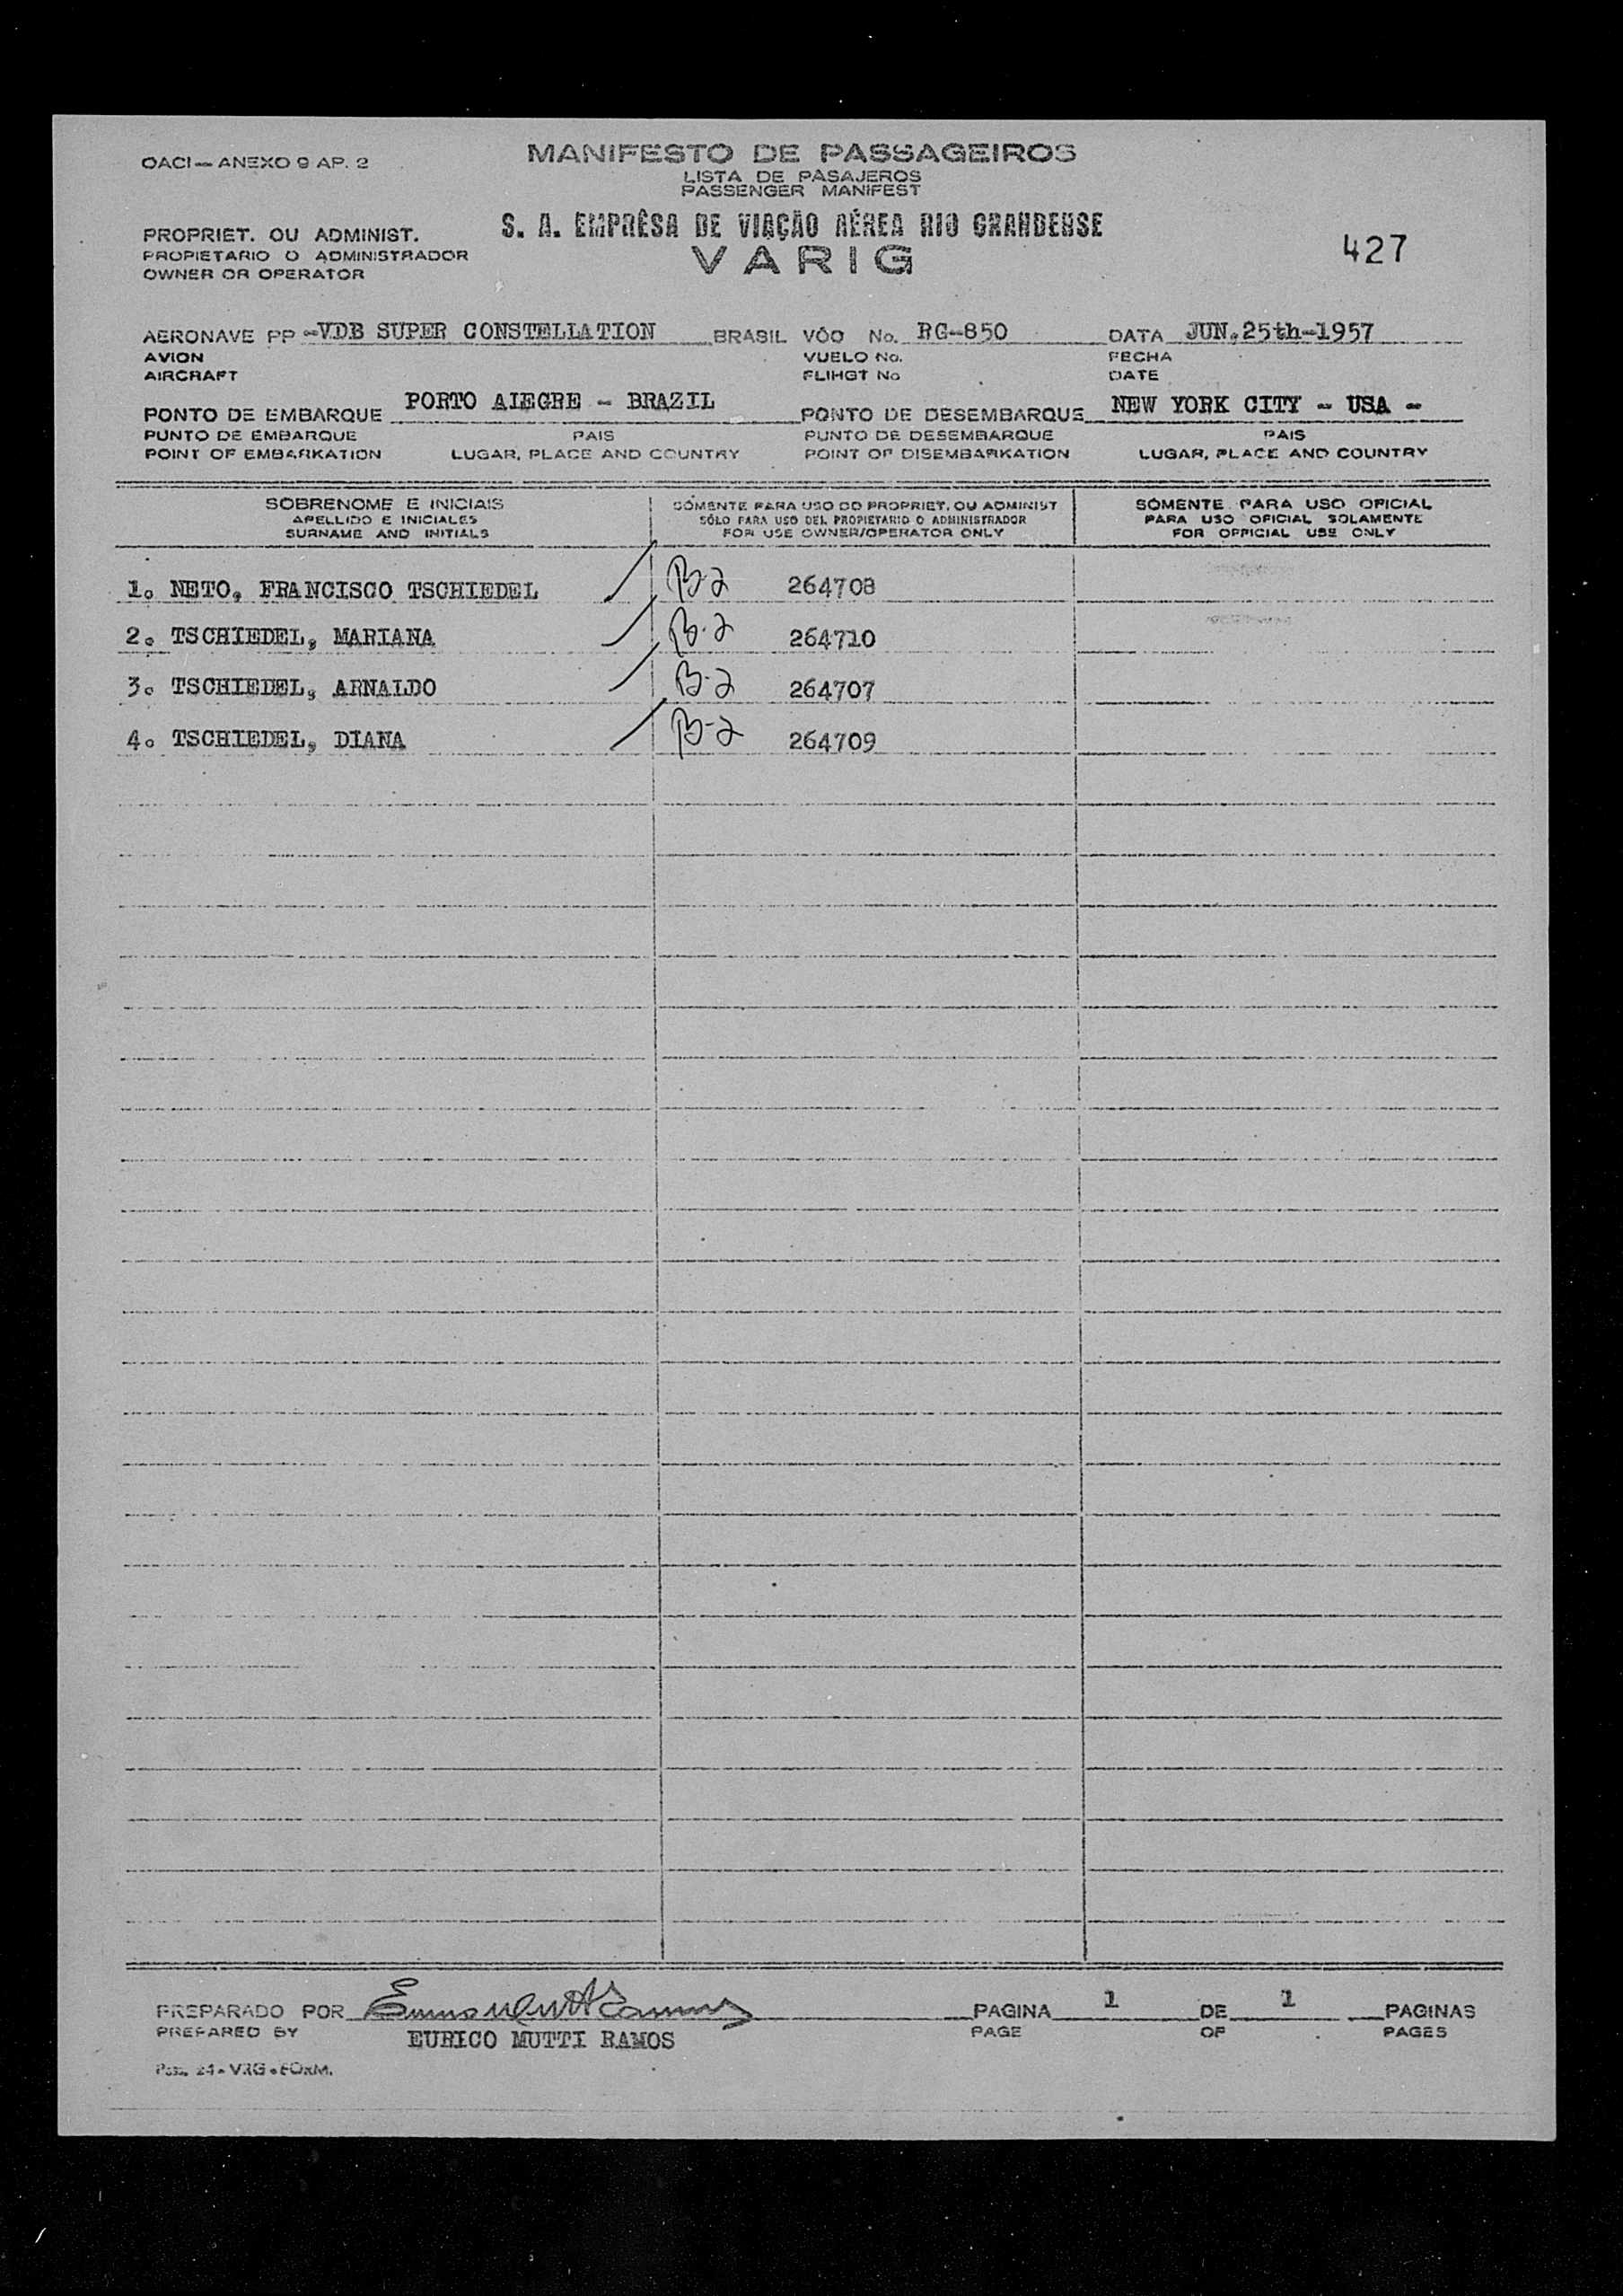 OACI — ANEXO 9 AP. 2
MANIFESTO DE PASSAGEIROS
LISTA DE PASAJEROS
PASSENGER MANIFEST
PROPRIET. OU ADMINIST.
PROPIETARIO O ADMINISTRADOR
OWNER OR OPERATOR
S. A. EMPRÊSA DE VIAÇÃO AÉREA RIO GRANDENSE
VARIG
427
AERONAVE PP -VDB SUPER CONSTELLATION BRASIL VÔO No. RG-850 DATA JUN.25th-1957
AVION VUELO No. FECHA
AIRCRAFT FLIHGT No DATE
PONTO DE EMBARQUE PORTO ALEGRE - BRAZIL PONTO DE DESEMBARQUE NEW YORK CITY - USA -
PUNTO DE EMBARQUE PAIS PUNTO DE DESEMBARQUE PAIS
POINT OF EMBARKATION LUGAR, PLACE AND COUNTRY POINT OF DISEMBARKATION LUGAR, PLACE AND COUNTRY
SOBRENOME E INICIAIS SÓMENTE PARA USO DO PROPRIET. OU ADMINIST SÓMENTE PARA USO OFICIAL
APELLIDO E INICIALES SÓLO PARA USO DEL PROPIETARIO O ADMINISTRADOR PARA USO OFICIAL SOLAMENTE
SURNAME AND INITIALS FOR USE OWNER/OPERATOR ONLY FOR OFFICIAL USE ONLY
1. NETO, FRANCISCO TSCHIEDEL B-2 264708
2. TSCHIEDEL, MARIANA B-2 264710
3. TSCHIEDEL, ARNALDO B-2 264707
4. TSCHIEDEL, DIANA B-2 264709
PREPARADO POR PAGINA 1 DE 1 PAGINAS
PREPARED BY EURICO MUTTI RAMOS PAGE OF PAGES
24 - VRG - FORM.